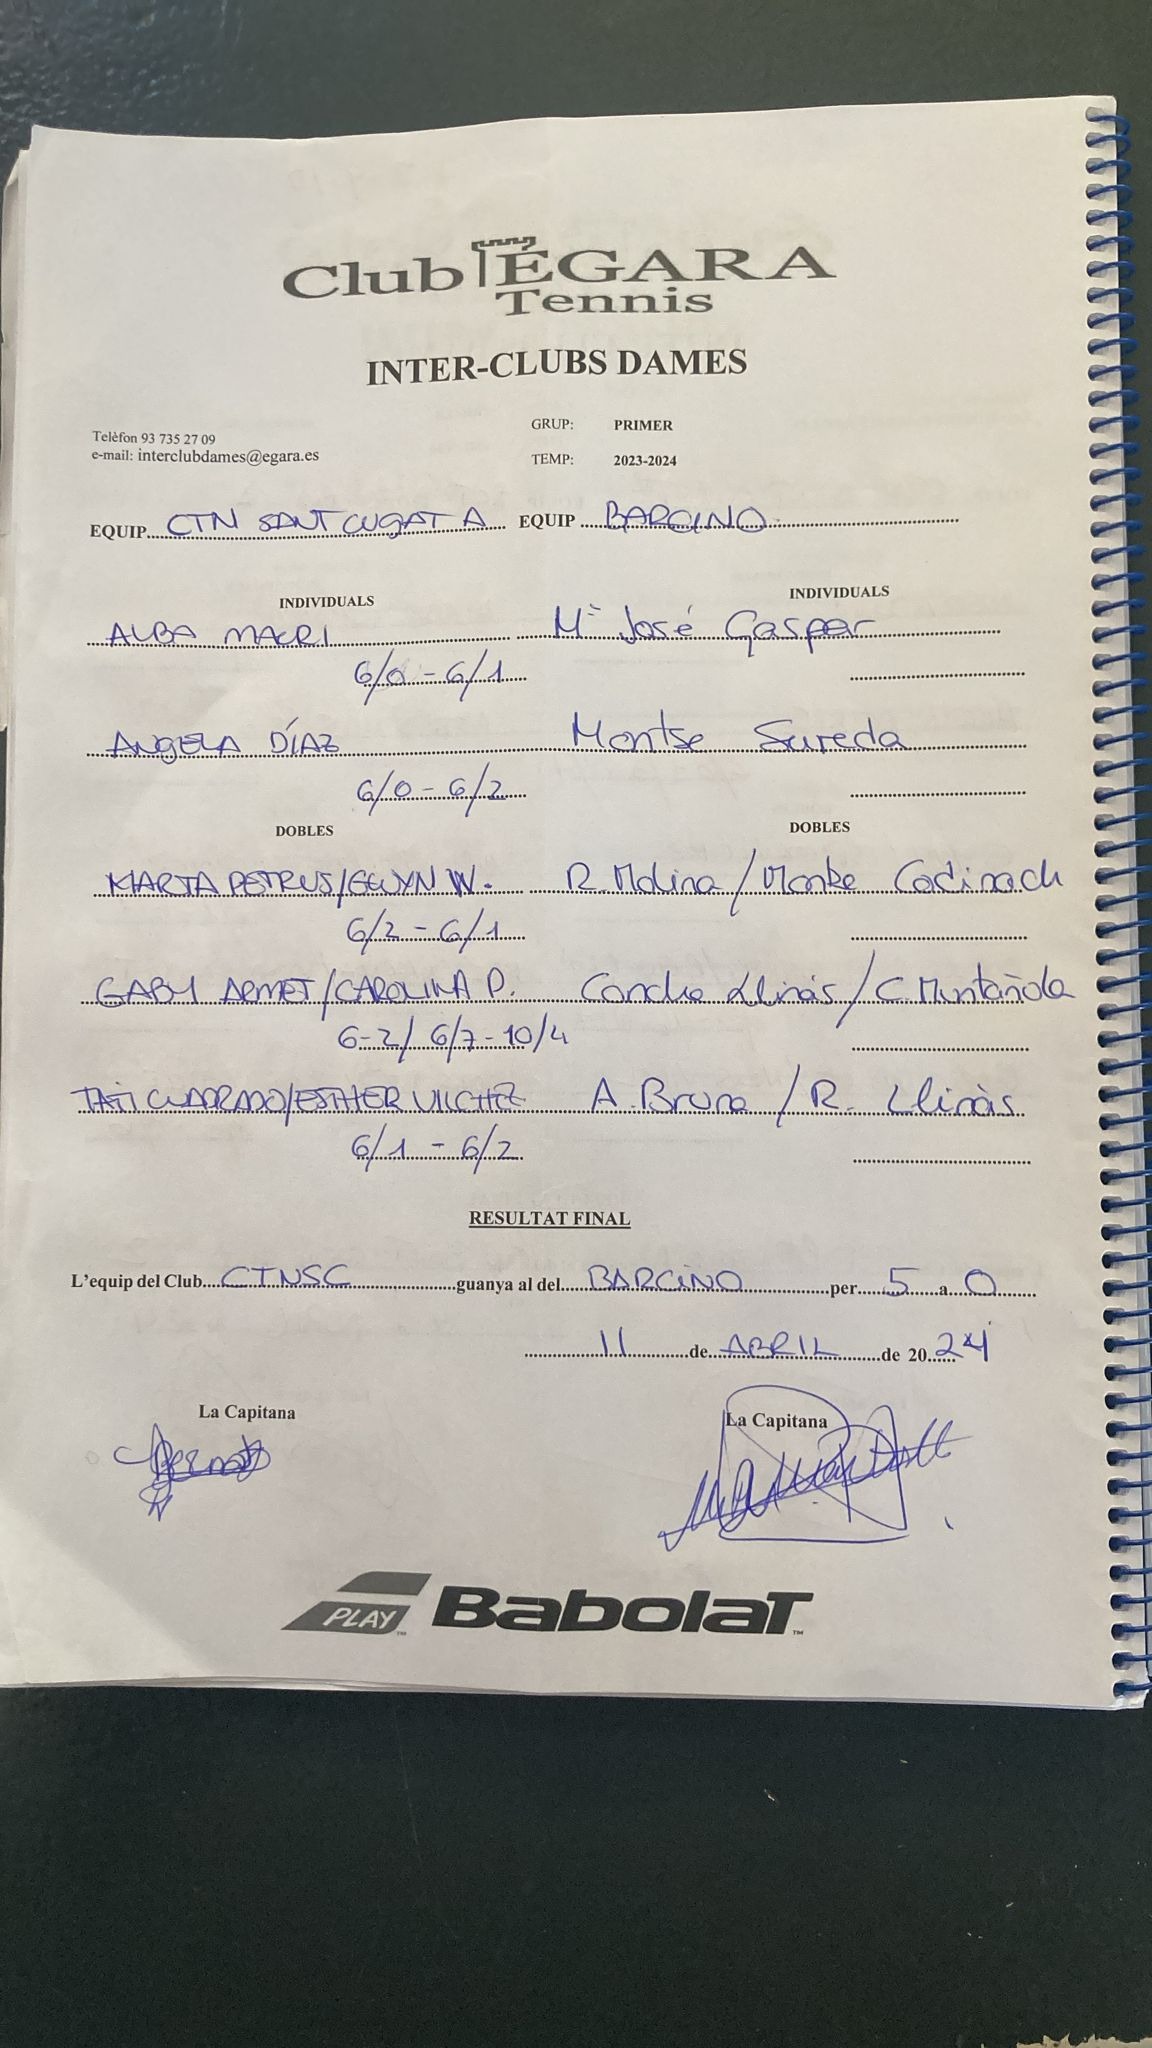 Club ÉGARA
Tennis
INTER-CLUBS DAMES
Telèfon 93 735 27 09
e-mail: interclubdames@egara.es
GRUP: PRIMER
TEMP: 2023-2024
EQUIP CTN SANT CUGAT A EQUIP BARCINO
INDIVIDUALS INDIVIDUALS
ALBA MACRI Mª José Gaspar
6/0 - 6/1
ANGELA DÍAZ Montse Sureda
6/0 - 6/2
DOBLES DOBLES
MARTA PETRUS/GWYN W. R. Molina / Codinach
6/2 - 6/1
GABY ARMET/CAROLINA P. Concha Llinás / C. Muntañola
6-2/ 6/7-10/4
TATI CUADRADO/ESTHER VILCHEZ A. Bruna / R. Llinàs
6/1 - 6/2
RESULTAT FINAL
L'equip del Club CTNSC guanya al del BARCINO per 5 a 0
11 de ABRIL de 2024
La Capitana La Capitana
PLAY BABOLAT